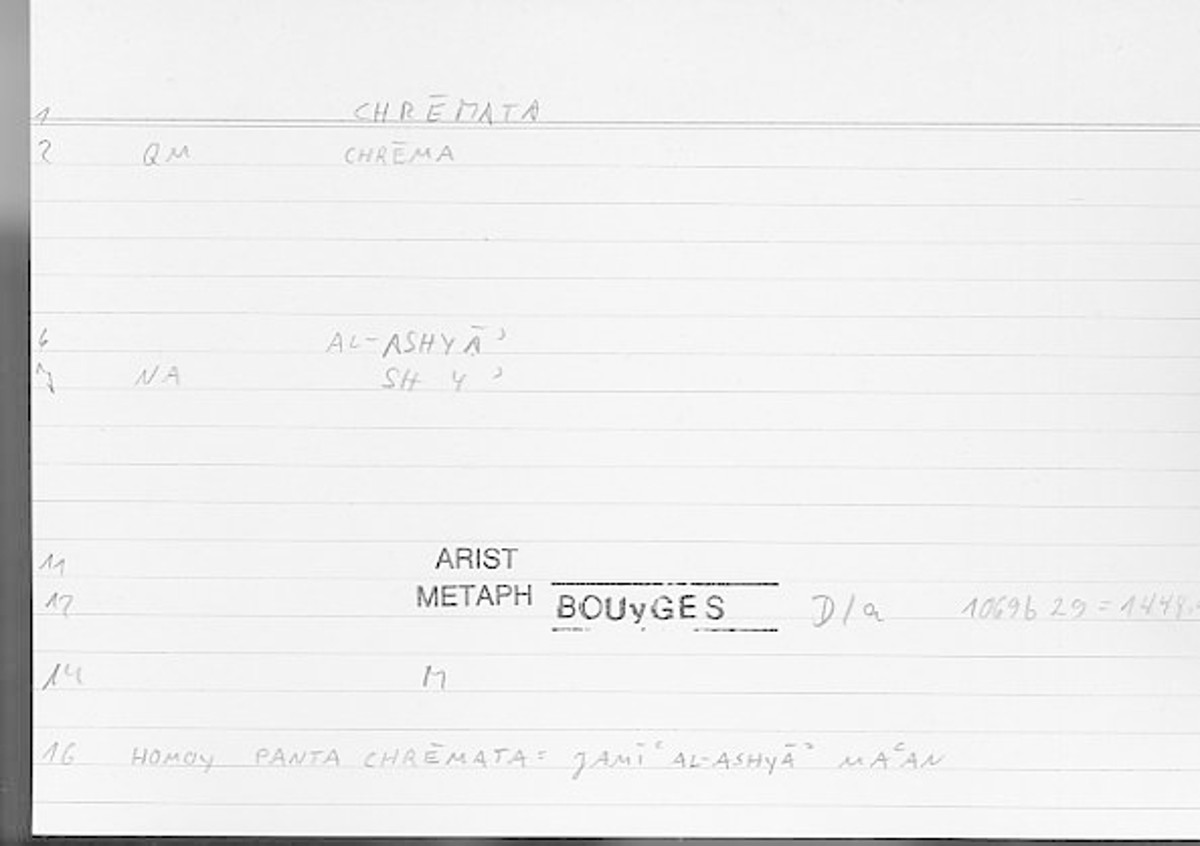 1 CHRĒMATA
2 QM CHRĒMA
6 AL-ASHYĀʾ
7 NA SH Y ʾ
11 ARIST
12 METAPH BOUyGES D/a 1069b 29 = 1444
14 M
16 HOMOY PANTA CHRĒMATA = JAMĪʿ AL-ASHYĀʾ MAʿAN